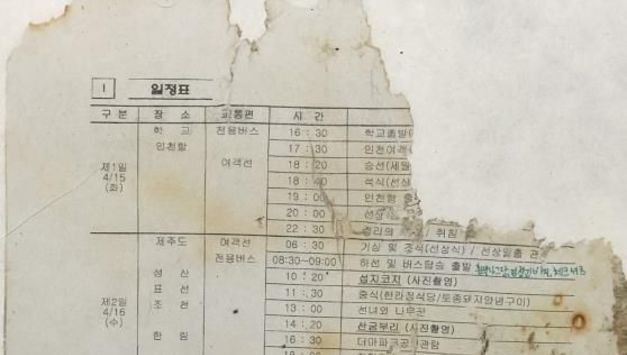 I 일정표
구 분 장 소 교통편 시 간
학 교 전용버스 16 : 30 학교출발(
인천항 17 : 30 인천여객
제1일 4/15 (화) 여객선 18 : 20 승선(세월
18 : 40 석식(선상
19 : 00 인천항 출
20 : 00 선상
22 : 30 / 취침
제주도 여객선 06 : 30 기상 및 조식(선상식) / 선상일출 관
전용버스 08:30~09:00 하선 및 버스탑승 출발
성 산 10 : 20 섭지코지 (사진촬영)
표 선 11 : 30 중식(한라정식당/토종돼지양념구이)
제2일 4/16 (수) 조 천 13 : 00 선녀와 나무꾼
14 : 20 산굼부리 (사진촬영)
한 림 16 : 30 더마파크공연관람